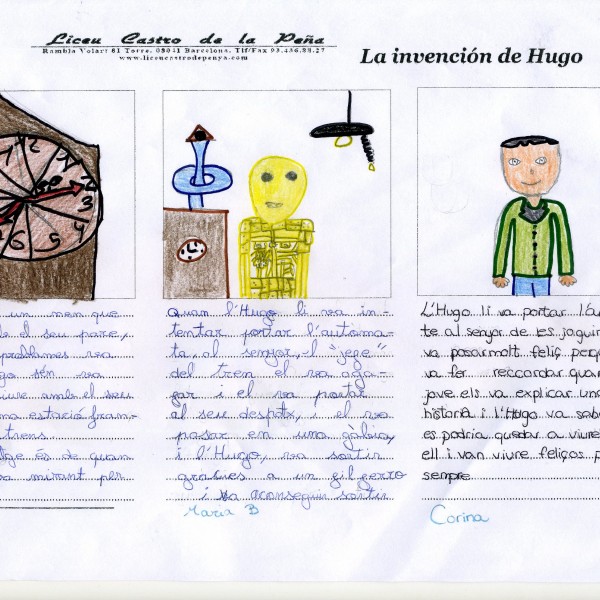 Liceu Castro de la Peña
Rambla Volart 81 Torre. 08041 Barcelona. Tlf/Fax 93.456.88.27
www.liceucastrodepenya.com
La invención de Hugo
un nen que
el seu pare,
problemes va
sén va
viure amb el seu
estació fran-
trens
és de quan
mirant per
Quan l'Hugo li va in-
tentar portar l'autòma-
ta, al senyor, l "jefe"
del tren el va aga-
gar i el va portar
al seu despatx, i el va
posar en una gàbia,
i l'Hugo, va sortir
gracies a un gil ferro
i va aconseguir sortir
Maria B
L'Hugo li va portar l'Au
te al senyor de les joguin
va posarmolt feliç perq
va fer reccordar quan
jove els va explicar una
historia i l'Hugo va sab
es podria quedar a viure
ell i van viure feliços p
sempre
Corina